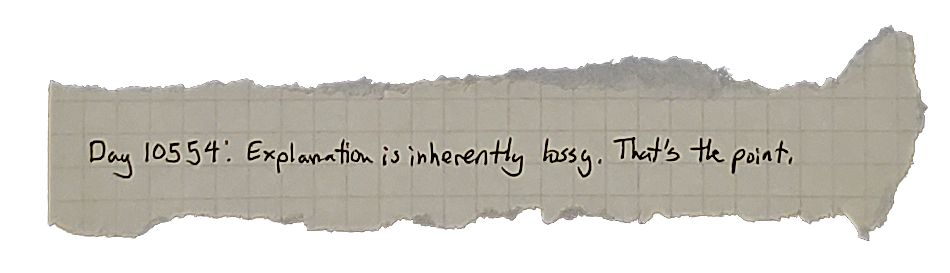 Day 10554: Explanation is inherently lossy. That's the point.